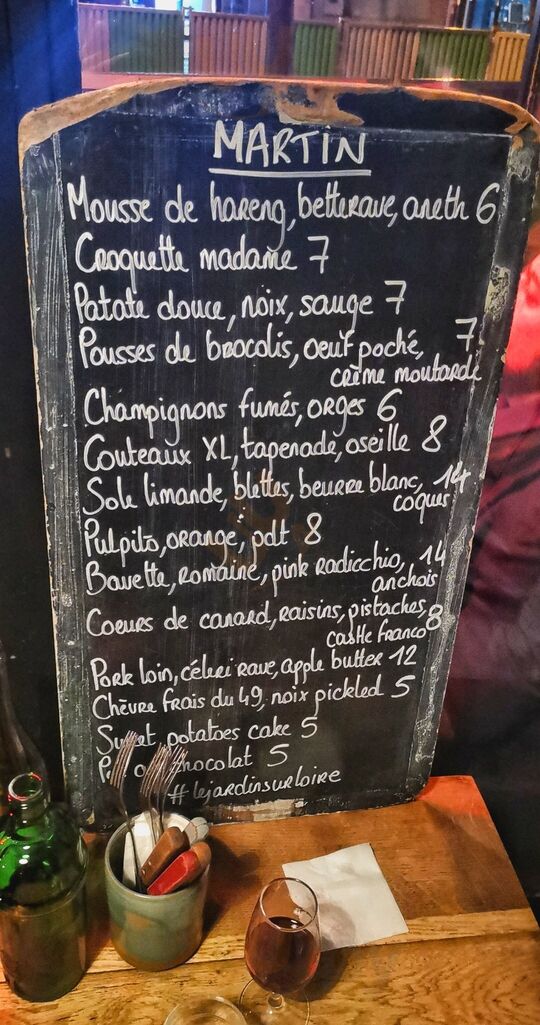 MARTIN
Mousse de hareng, betterave, aneth 6
Croquette madame 7
Patate douce, noix, sauge 7
Pousses de brocolis, oeuf poché, 7
crème moutarde
Champignons fumés, orges 6
Couteaux XL, tapenade, oseille 8
Sole limande, blettes, beurre blanc, 14
coques
Pulpito, orange, pdt 8
Bavette, romaine, pink radicchio, 14
anchois
Coeurs de canard, raisins, pistaches, 8
castle franco
Pork loin, céleri rave, apple butter 12
Chèvre frais du 49, noix pickled 5
Sweet potatoes cake 5
chocolat 5
#lejardinsurloire